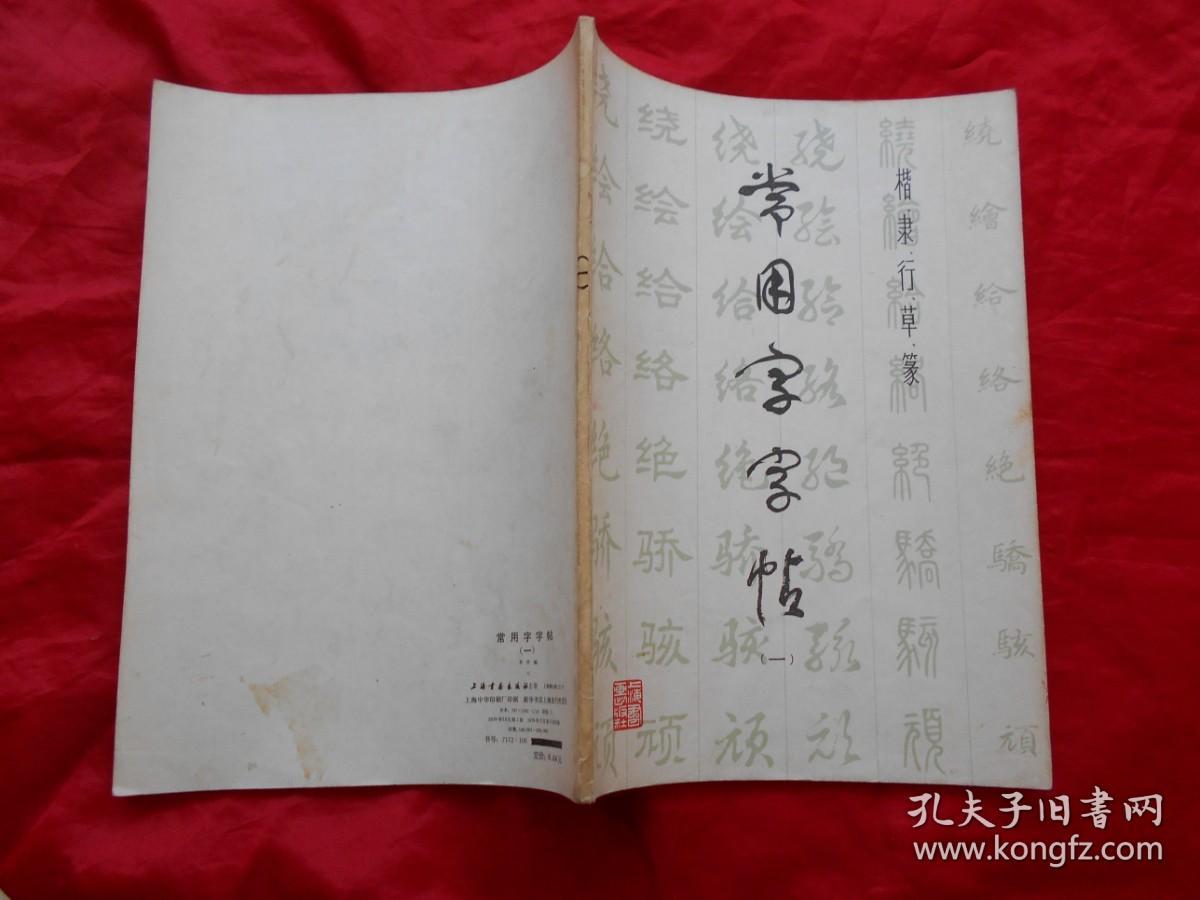 常用字字帖
（一）
楷·隶·行·草·篆
上海書画出版社
绕绘给络绝骄骇顽
绕绘给络绝骄骇顽
绕绘给络绝骄骇顽
绕绘给络绝骄骇顽
繞繪給絡絕驕駭頑
繞繪給絡絶驕駭頑
（一）
常用字字帖
（一）
上海书画出版社
上海中华印刷厂印刷
书号：7172·100
定价：0.44元
孔夫子旧书网
www.kongfz.com